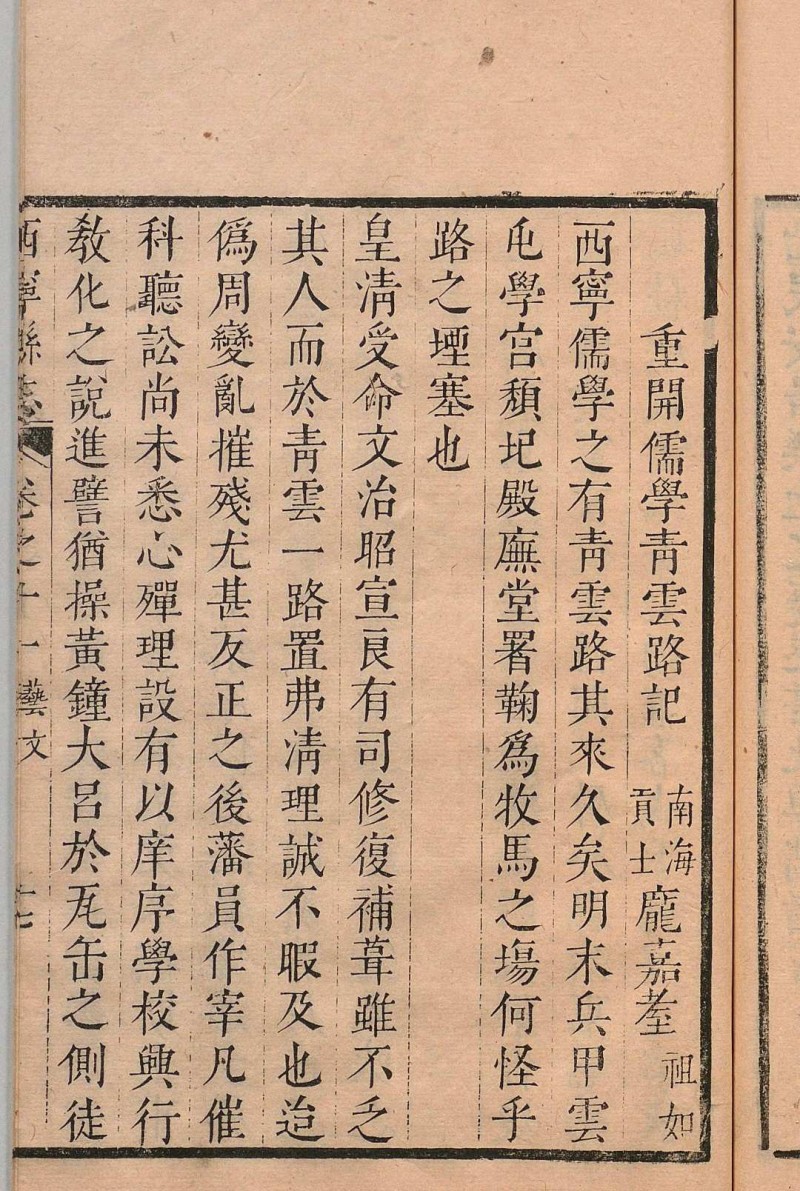 重開儒學青雲路記 南海貢士 龐嘉耋 祖如
西寧儒學之有青雲路其來久矣明末兵甲雲
屯學宮頹圮殿廡堂署鞠爲牧馬之塲何怪乎
路之堙塞也
皇淸受命文治昭宣良有司修復補葺雖不乏
其人而於青雲一路置弗淸理誠不暇及也迨
僞周變亂摧殘尤甚反正之後藩員作宰凡催
科聽訟尚未悉心殫理設有以庠序學校興行
敎化之說進譬猶操黃鐘大呂於瓦缶之側徒
西寧縣志 卷之十一 藝文 十七